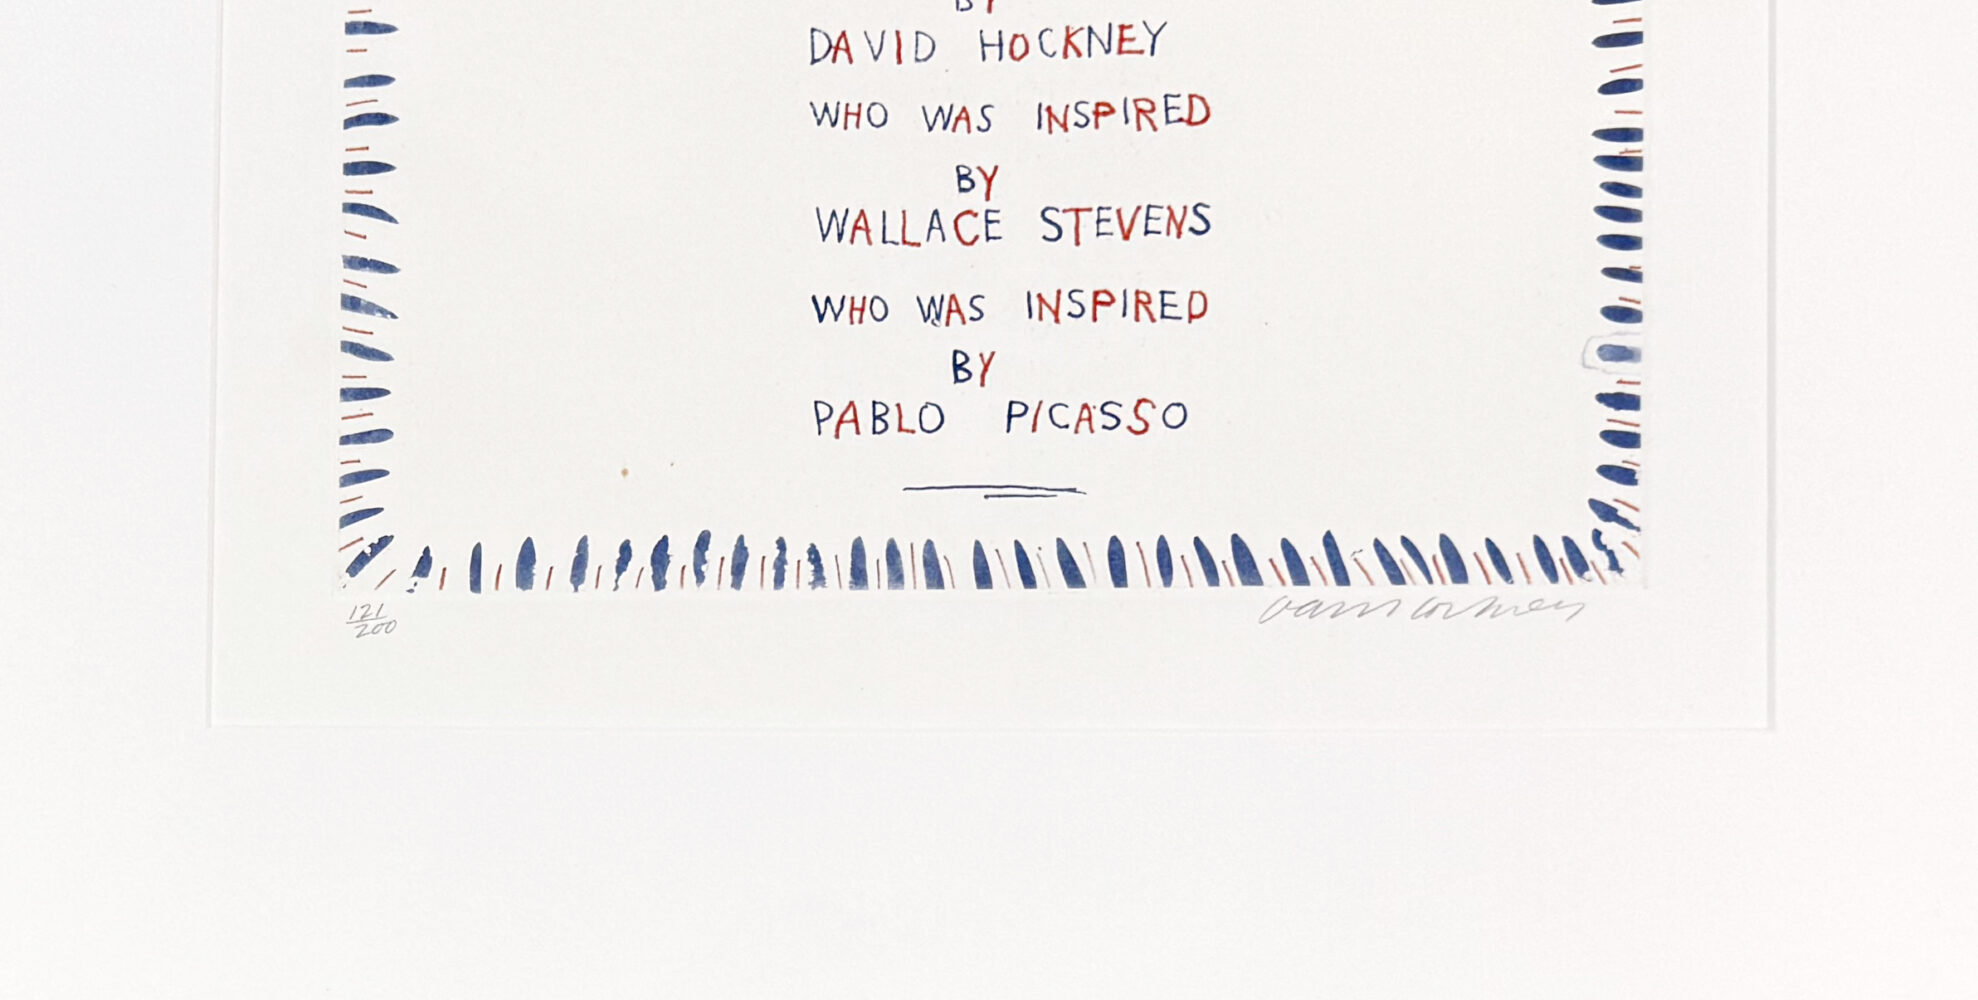 BY
DAVID HOCKNEY
WHO WAS INSPIRED
BY
WALLACE STEVENS
WHO WAS INSPIRED
BY
PABLO PICASSO
121
200